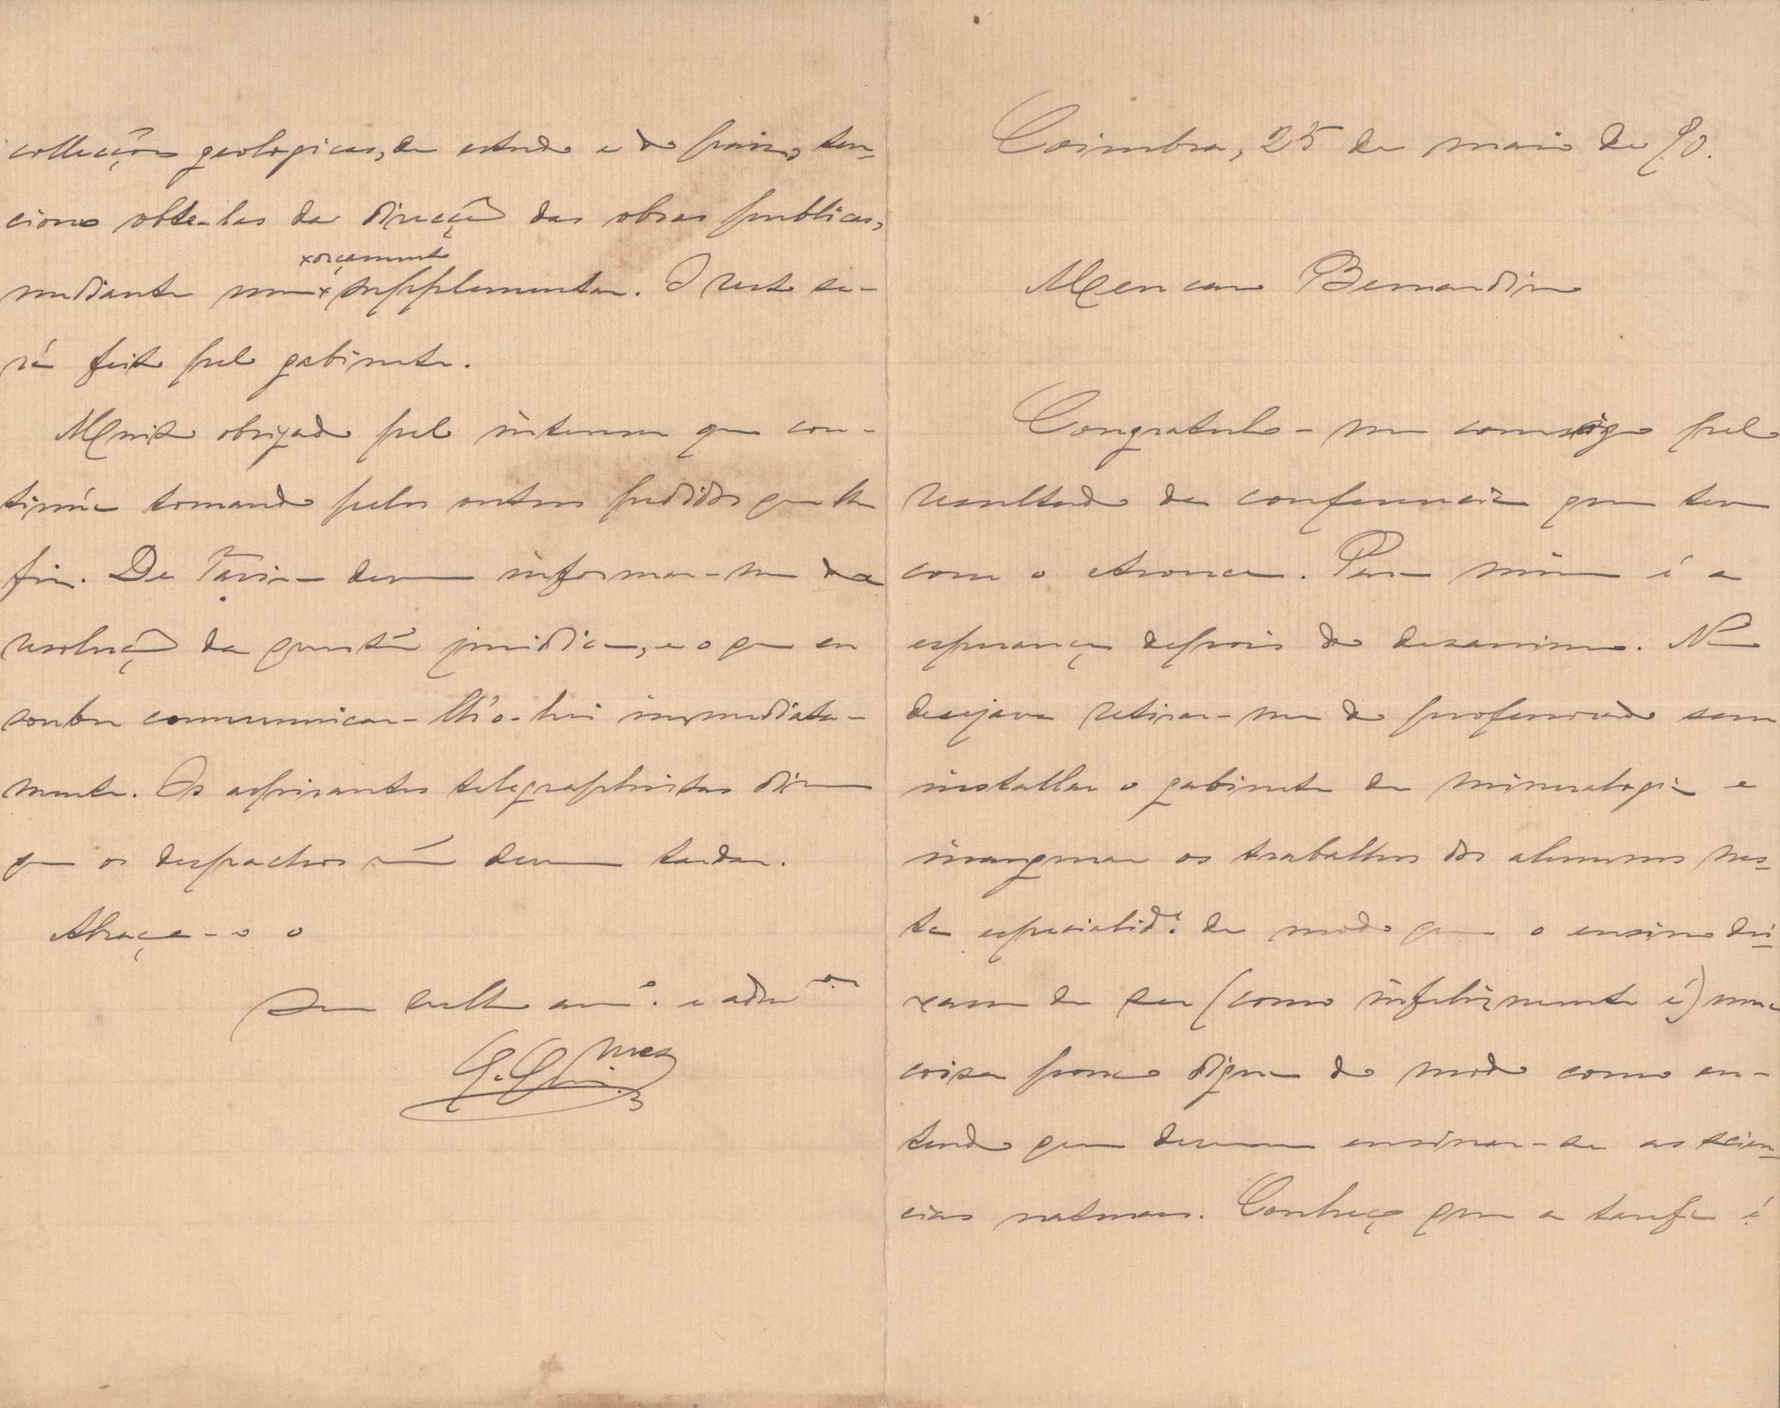 Coimbra, 25 de maio de 90.
Meu caro Bernardino
Congratulo-me comsigo pelo
resultado da conferencia que teve
com o Arouca. Para mim é a
esperança depois do desanimo. Não
desejava retirar-me do professorado sem
installar o gabinete de mineralogia e
inaugurar os trabalhos dos alumnos nes-
ta especialid.e de modo que o ensino dei-
xasse de ser (como infelizmente é) uma
coisa pouco digna do modo como en-
tendo que devem ensinar-se as scien-
cias naturaes. Conheço que a tarefa é
collecções geologicas, de estudo e do paiz, ten-
ciono obte-las da direcção das obras publicas,
mediante um orçamento supplementar. O resto se-
rá feito pelo gabinete.
Muito obrigado pelo interesse que con-
tinúa tomando pelos outros pedidos que lhe
fiz. De Paris devem informar-me da
resolução da questão juridica, e o que eu
souber communicar-lh'o-hei immediata-
mente. Os aspirantes telegraphistas dizem
que os despachos não devem tardar.
Abraça-o o
Seu coll.a am.o e adm.or